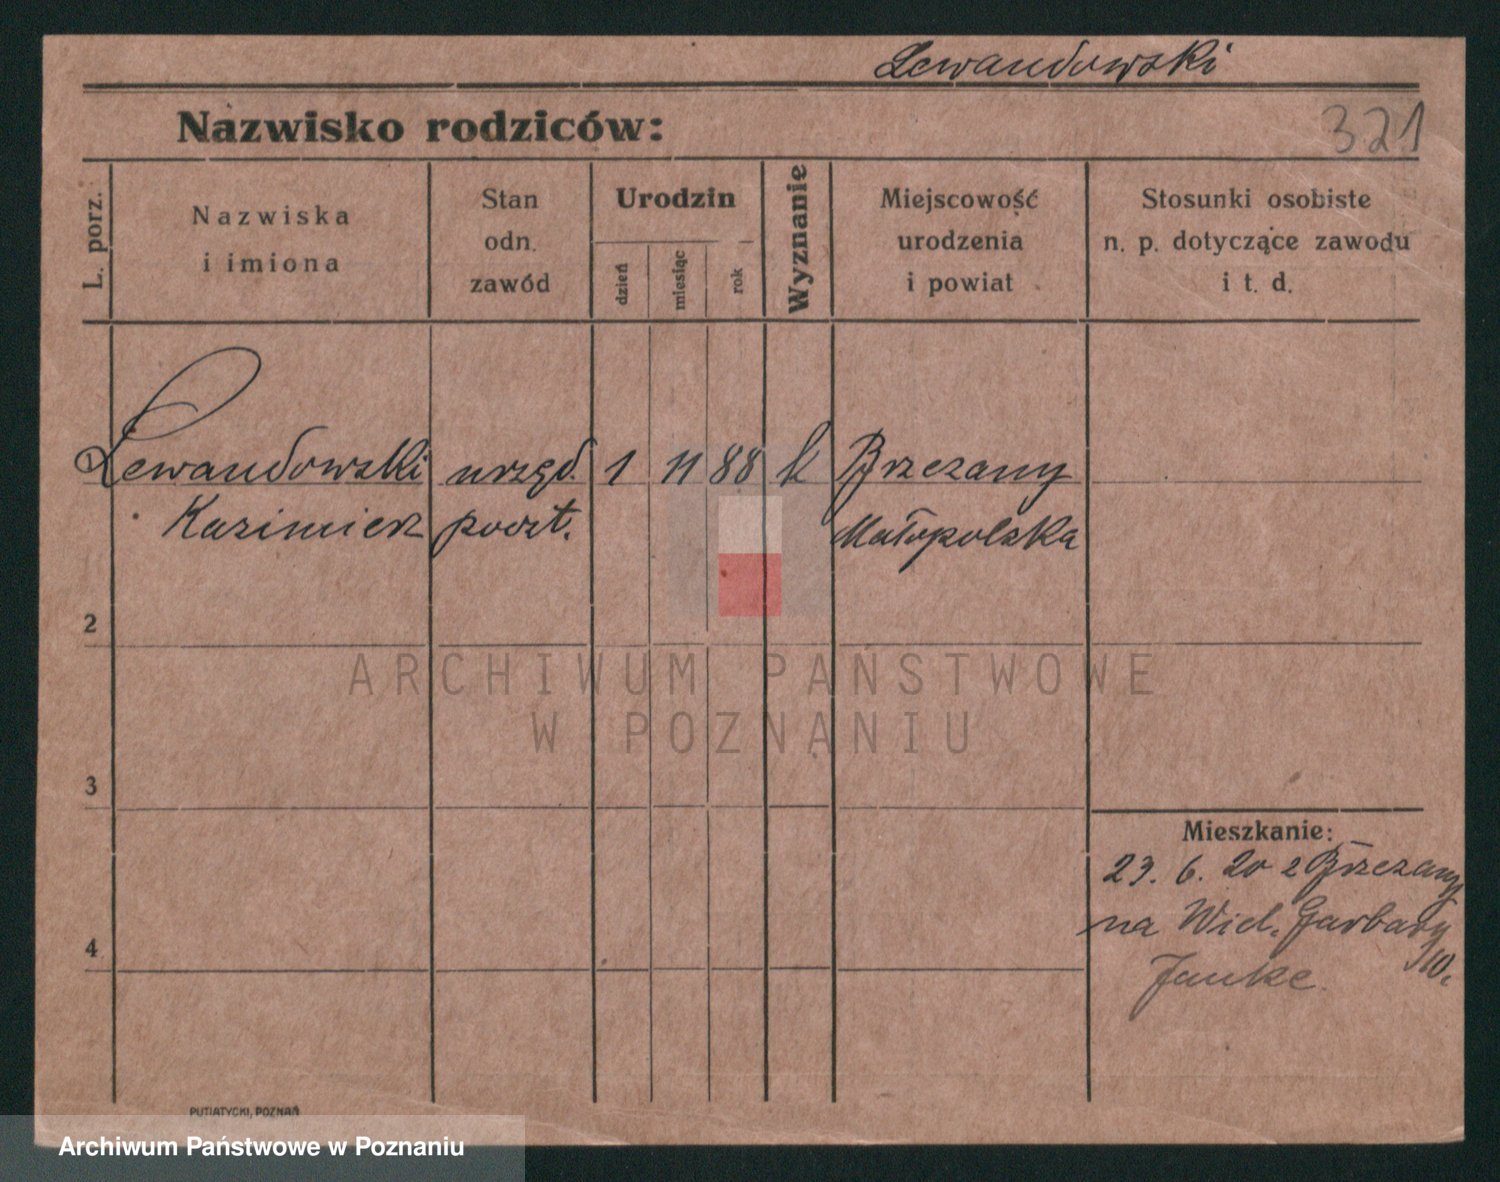 Lewandowski
Nazwisko rodziców:
321
L. porz.
Nazwiska
i imiona
Stan
odn.
zawód
Urodzin
dzień
miesiąc
rok
Wyznanie
Miejscowość
urodzenia
i powiat
Stosunki osobiste
n. p. dotyczące zawodu
i t. d.
1 Lewandowski urzęd. 1 11 88 k Brzezany
Kazimierz poczt. Małopolska
2
ARCHIWUM PAŃSTWOWE
W POZNANIU
3
Mieszkanie:
23. 6. 20 z Brzezany
na Wiel. Garbary
40.
4
Janke.
PUTIATYCKI, POZNAŃ
Archiwum Państwowe w Poznaniu